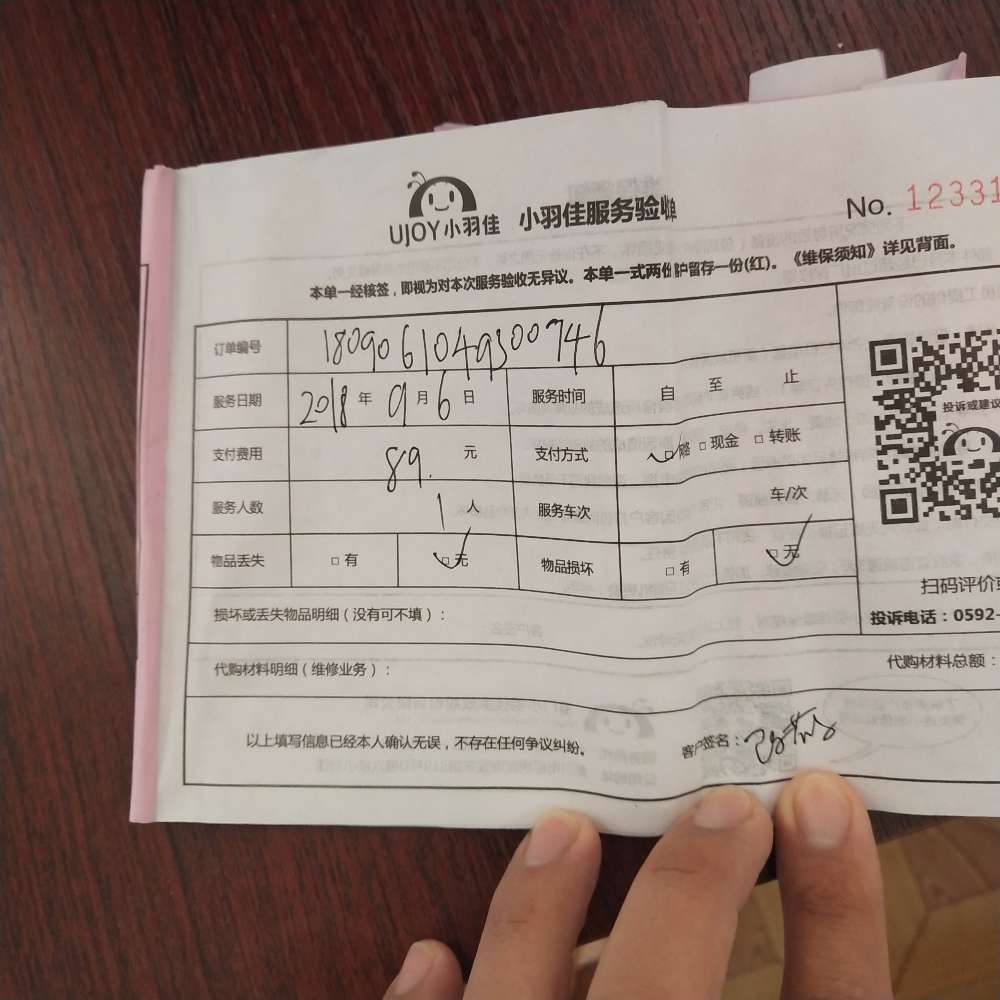 UJOY小羽佳 小羽佳服务验收单
No. 12331
本单一经核签，即视为对本次服务验收无异议。本单一式两份，户留存一份(红)。《维保须知》详见背面。
订单编号 1809061049300746
服务日期 2018年9月6日 服务时间 自 至 止
支付费用 89. 元 支付方式 □ □现金 □转账
投诉或建议
服务人数 1人 服务车次 车/次
物品丢失 □有 □无 物品损坏 □有 □无
扫码评价或
损坏或丢失物品明细（没有可不填）：
投诉电话：0592-
代购材料明细（维修业务）：
代购材料总额：
以上填写信息已经本人确认无误，不存在任何争议纠纷。
客户签名：